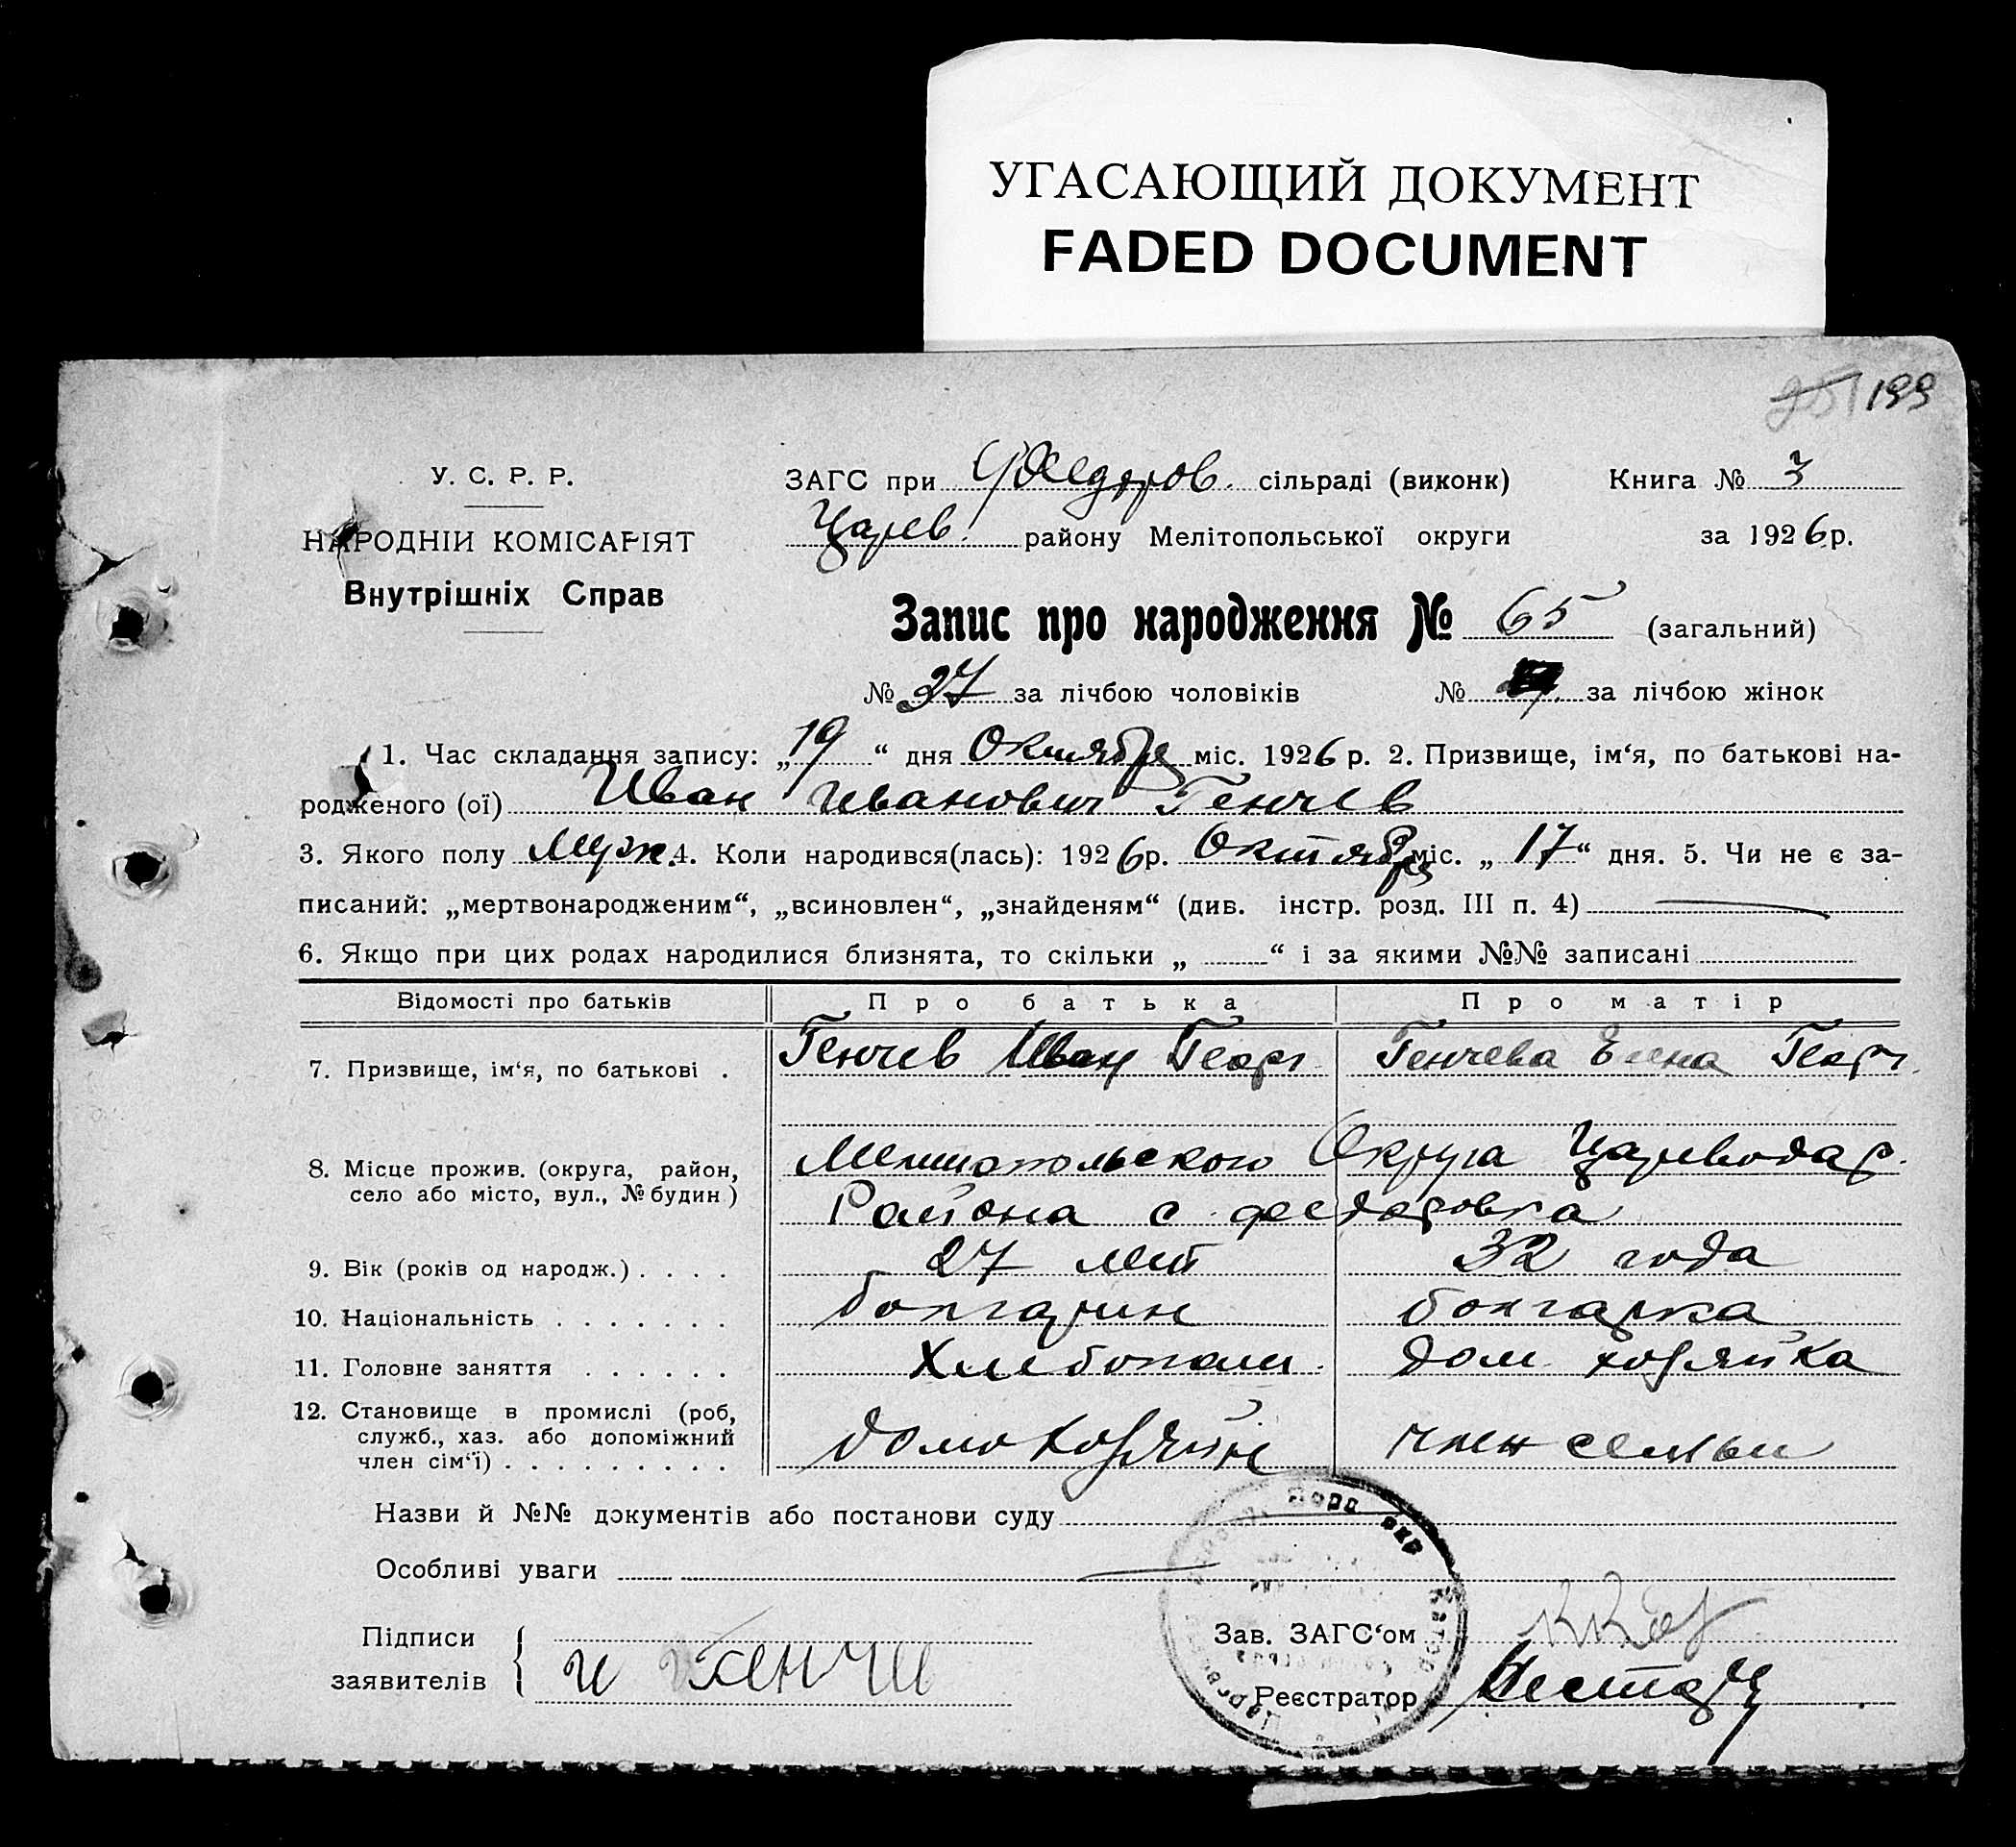 УГАСАЮЩИЙ ДОКУМЕНТ
FADED DOCUMENT
251 199
У. С. Р. Р.
НАРОДНІЙ КОМІСАРІЯТ
Внутрішніх Справ
ЗАГС при Федоров. сільраді (виконк) Книга № 3
Царев. району Мелітопольської округи за 1926 р.
Запис про народження № 65 (загальний)
№ 27 за лічбою чоловіків № за лічбою жінок
1. Час складання запису: „19“ дня Октября міс. 1926 р. 2. Призвище, ім‘я, по батькові на-
родженого (ої) Иван Иванович Генчев
3. Якого полу Муж. 4. Коли народився(лась): 1926 р. Октября міс. „17“ дня. 5. Чи не є за-
писаний: „мертвонародженим“, „всиновлен“, „знайденям“ (див. інстр. розд. III п. 4)
6. Якщо при цих родах народилися близнята, то скільки „ “ і за якими №№ записані
Відомості про батьків Про батька Про матір
7. Призвище, ім‘я, по батькові . Генчев Иван Георг. Генчева Елена Георг.
8. Місце прожив. (округа, район, Мелитопольского Округа Цареводар.
село або місто, вул., № будин) Района с. Федоровка
9. Вік (років од народж.) . . . . 27 лет 32 года
10. Національність . . . . . . . болгарин болгарка
11. Головне заняття . . . . . . Хлебопаш. дом. хозяйка
12. Становище в промислі (роб,
служб., хаз. або допоміжний домохозяин член семьи
член сім‘ї) . . . . . . . . .
Назви й №№ документів або постанови суду
Особливі уваги
Підписи Зав. ЗАГС‘ом
заявителів и Генчи Реєстратор